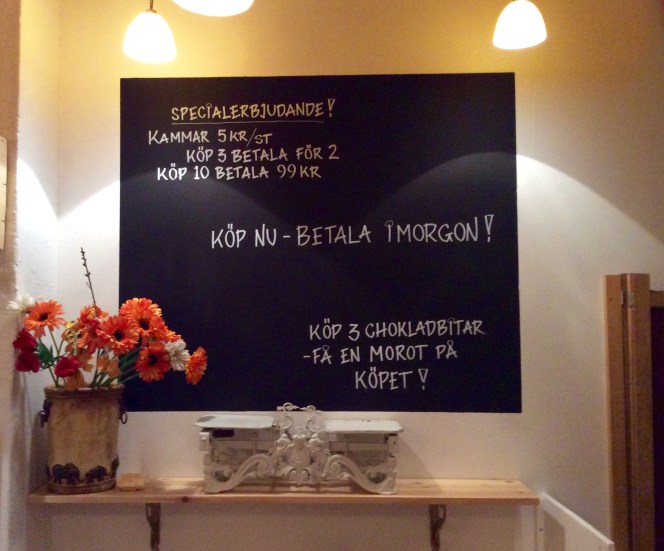 SPECIALERBJUDANDE!
KAMMAR 5 KR/ST
KÖP 3 BETALA FÖR 2
KÖP 10 BETALA 99 KR
KÖP NU - BETALA IMORGON!
KÖP 3 CHOKLADBITAR
-FÅ EN MOROT PÅ
KÖPET!